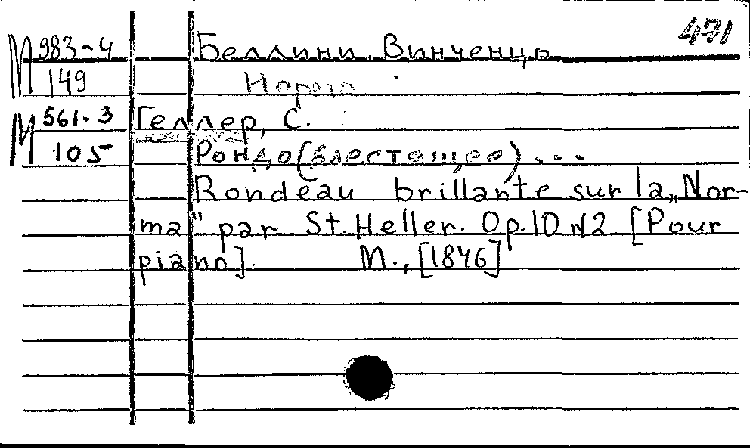 471
M 983-4 Беллини, Винченцо
149 Норма
M 561-3 Геллер, С.
105 Рондо (блестящее)...
Rondeau brillante sur la „Nor-
ma" par St. Heller. Op. 10 N2 [Pour
piano]. М., [1846]